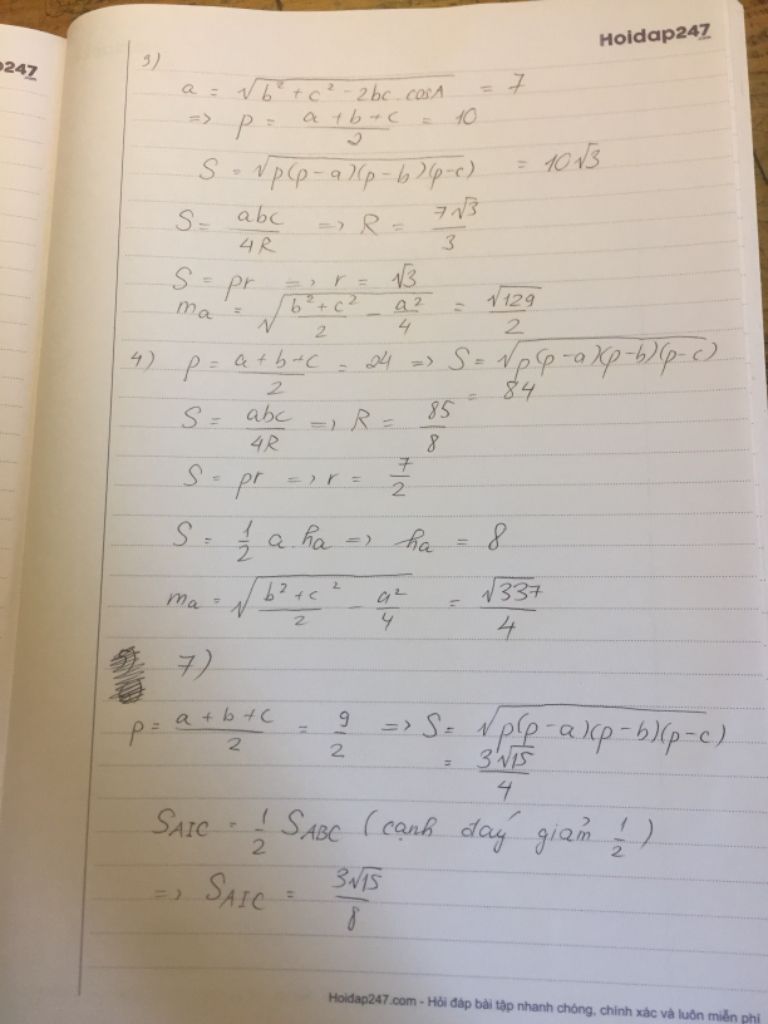 247
Hoidap247
3)
a = √(b² + c² - 2bc.cosA) = 7
=> p = (a+b+c)/2 = 10
S = √(p(p-a)(p-b)(p-c)) = 10√3
S = abc/4R => R = 7√3/3
S = pr => r = √3
ma = √((b²+c²)/2 - a²/4) = √129/2
4) p = (a+b+c)/2 = 24 => S = √(p(p-a)(p-b)(p-c))
= 84
S = abc/4R => R = 85/8
S = pr => r = 7/2
S = 1/2 a.ha => ha = 8
ma = √((b²+c²)/2 - a²/4) = √337/4
7)
p = (a+b+c)/2 = 9/2 => S = √(p(p-a)(p-b)(p-c))
= 3√15/4
SAIC = 1/2 SABC (cạnh đáý giảm 1/2)
=> SAIC = 3√15/8
Hoidap247.com - Hỏi đáp bài tập nhanh chóng, chính xác và luôn miễn phí